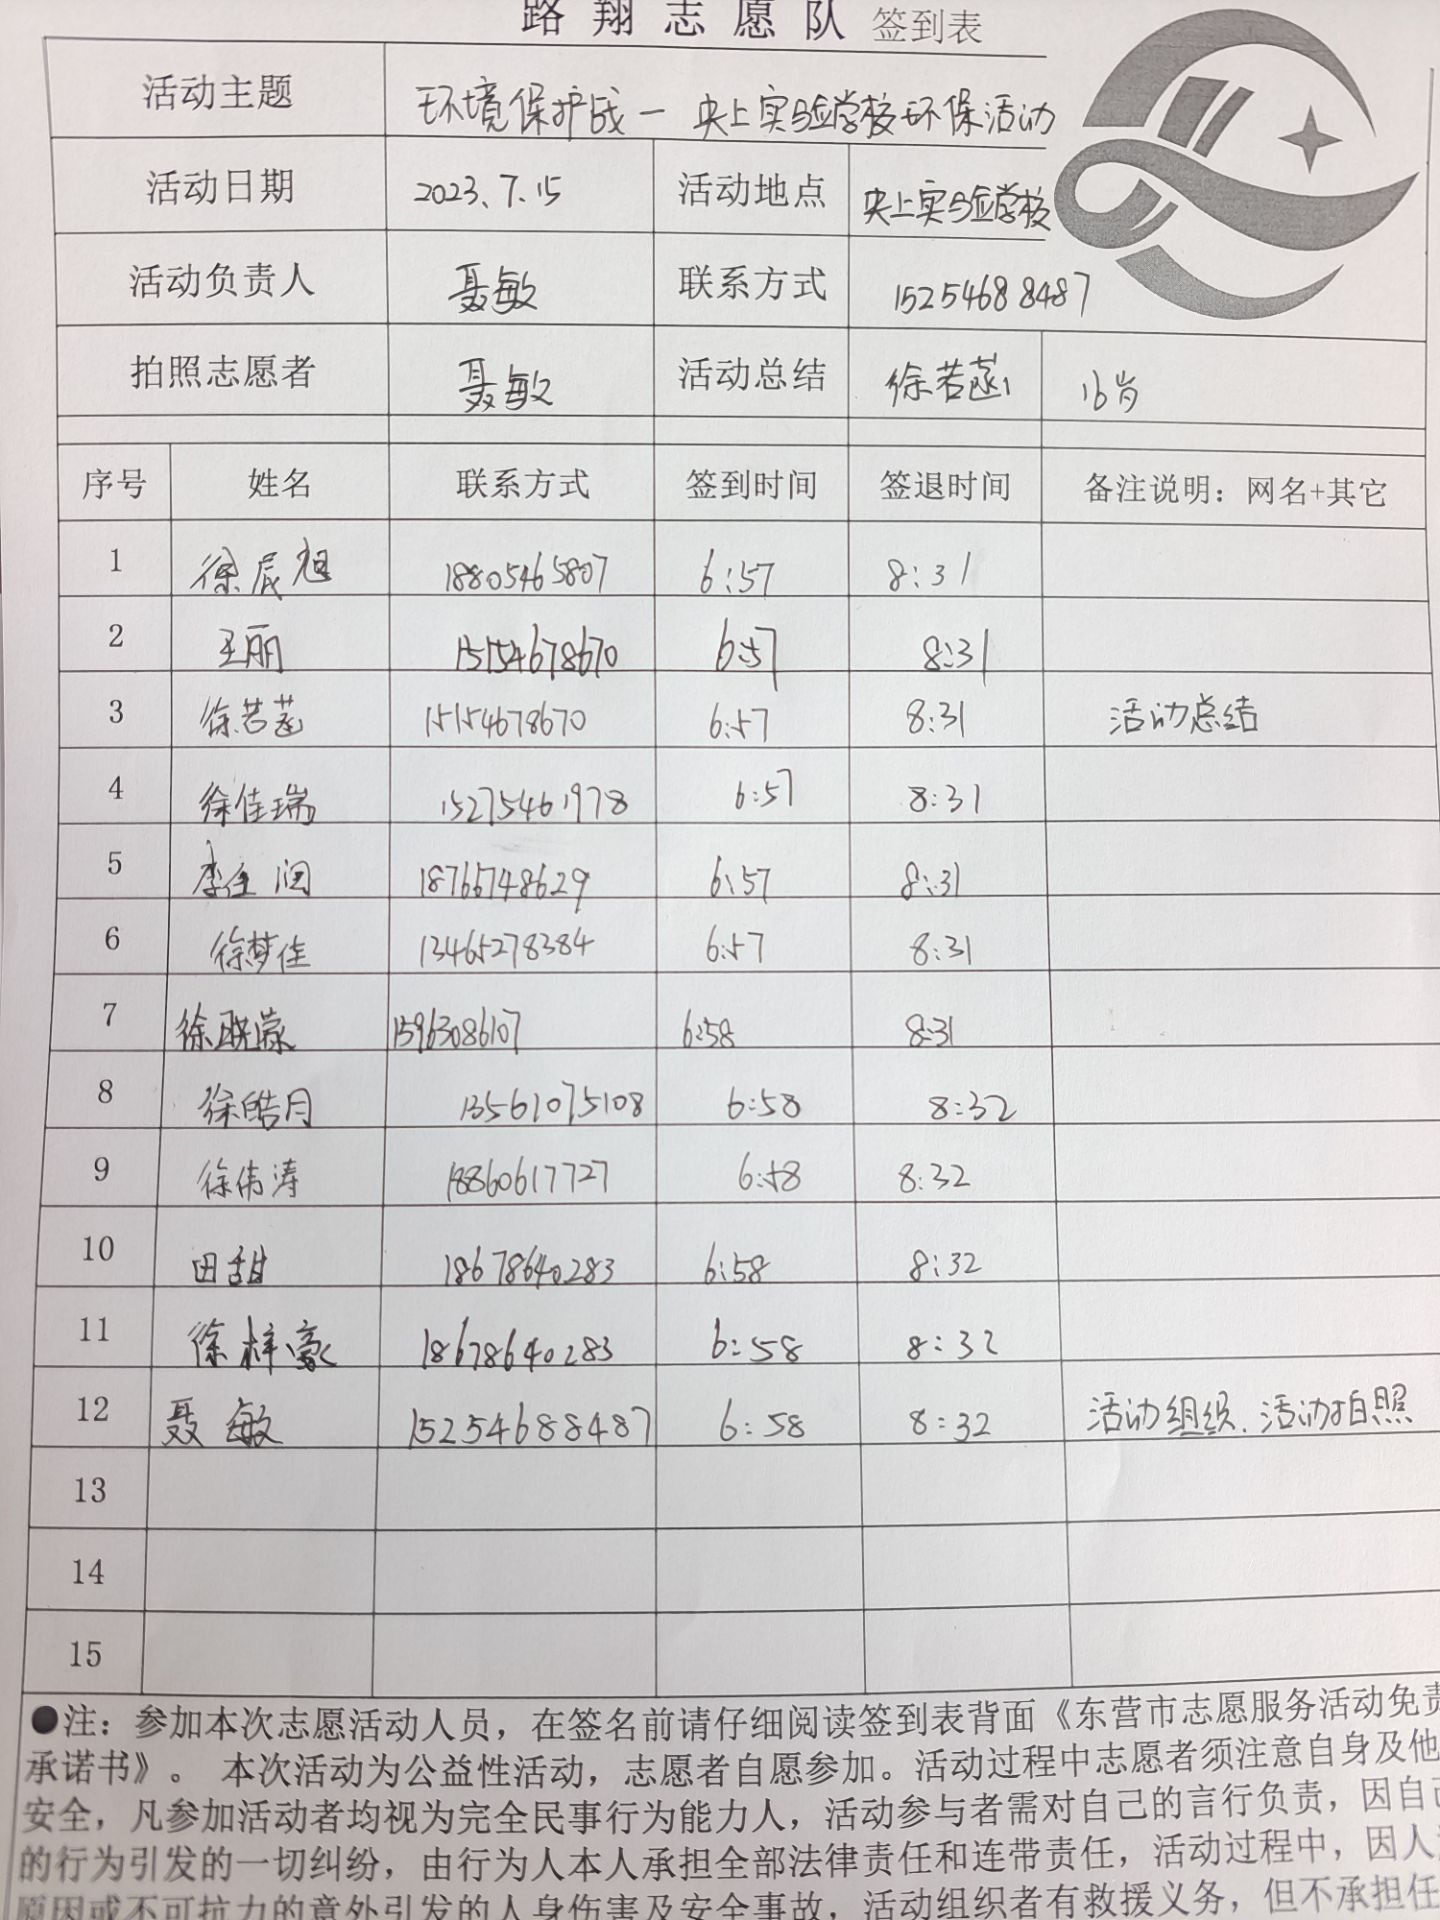 路翔志愿队 签到表
活动主题 环境保护战一 央上实验学校环保活动
活动日期 2023.7.15 活动地点 央上实验学校
活动负责人 聂敏 联系方式 15254688487
拍照志愿者 聂敏 活动总结 徐若菡 16岁
序号 姓名 联系方式 签到时间 签退时间 备注说明：网名+其它
1 徐辰旭 18805465807 6:57 8:31
2 王丽 15154678670 6:57 8:31
3 徐若菡 15154678670 6:57 8:31 活动总结
4 徐佳瑞 15275461978 6:57 8:31
5 李佳润 18766748629 6:57 8:31
6 徐梦佳 13465278384 6:57 8:31
7 徐 15963086107 6:58 8:31
8 徐皓月 13561075108 6:58 8:32
9 徐伟涛 18860617727 6:58 8:32
10 田甜 18678640283 6:58 8:32
11 徐梓豪 18678640283 6:58 8:32
12 聂敏 15254688487 6:58 8:32 活动组织、活动拍照
13
14
15
●注：参加本次志愿活动人员，在签名前请仔细阅读签到表背面《东营市志愿服务活动免责
承诺书》。 本次活动为公益性活动，志愿者自愿参加。活动过程中志愿者须注意自身及他
安全，凡参加活动者均视为完全民事行为能力人，活动参与者需对自己的言行负责，因自己
的行为引发的一切纠纷，由行为人本人承担全部法律责任和连带责任，活动过程中，因人
原因或不可抗力的意外引发的人身伤害及安全事故，活动组织者有救援义务，但不承担任